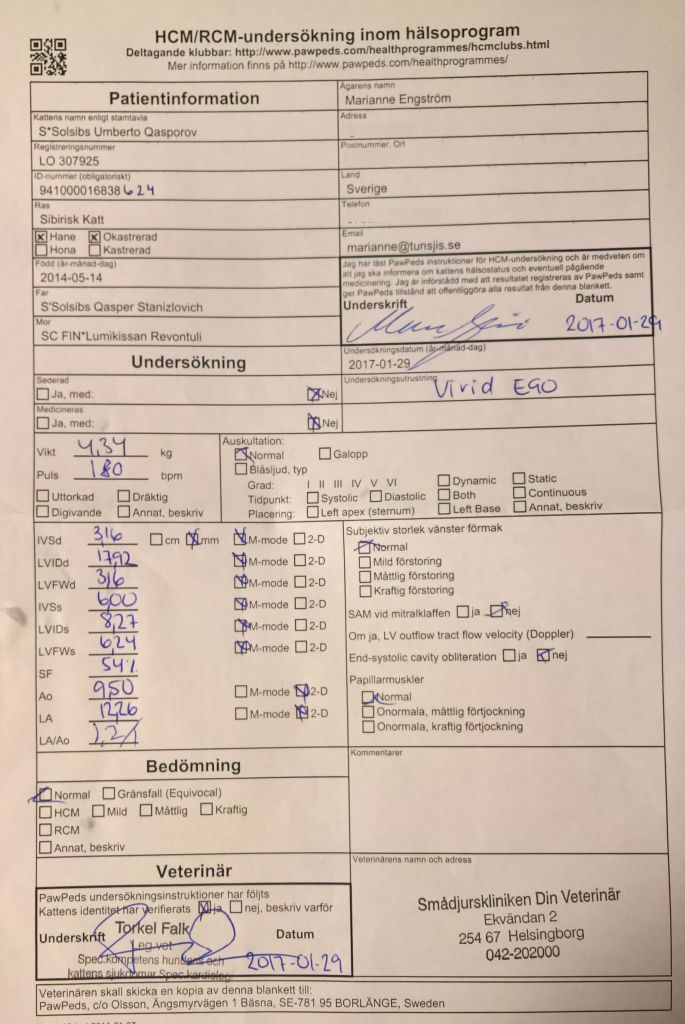 HCM/RCM-undersökning inom hälsoprogram
Deltagande klubbar: http://www.pawpeds.com/healthprogrammes/hcmclubs.html
Mer information finns på http://www.pawpeds.com/healthprogrammes/
Patientinformation
Kattens namn enligt stamtavla
S*Solsibs Umberto Qasporov
Registreringsnummer
LO 307925
ID-nummer (obligatoriskt)
941000016838624
Ras
Sibirisk Katt
Hane Okastrerad
Hona Kastrerad
Född (år-månad-dag)
2014-05-14
Far
S*Solsibs Qasper Stanizlovich
Mor
SC FIN*Lumikissan Revontuli
Ägarens namn
Marianne Engström
Adress
Postnummer, Ort
Land
Sverige
Telefon
Email
marianne@tunsjis.se
Jag har läst PawPeds instruktioner för HCM-undersökning och är medveten om
att jag ska informera om kattens hälsostatus och eventuell pågående
medicinering. Jag är införstådd med att resultatet registreras av PawPeds samt
ger PawPeds tillstånd att offentliggöra alla resultat från denna blankett.
Underskrift Datum
2017-01-29
Undersökning
Undersökningsdatum (år-månad-dag)
2017-01-29
Sederad
Ja, med: Nej
Undersökningsutrustning
Vivid
Medicineras
Ja, med: Nej
Vikt 4,34 kg
Puls 180 bpm
Uttorkad Dräktig
Digivande Annat, beskriv
Auskultation:
Normal Galopp
Blåsljud, typ
Grad: I II III IV V VI
Tidpunkt: Systolic Diastolic
Placering: Left apex (sternum)
Dynamic Static
Both Continuous
Left Base Annat, beskriv
IVSd 3,16 cm mm M-mode 2-D
LVIDd 17,92 M-mode 2-D
LVFWd 3,16 M-mode 2-D
IVSs 6,00 M-mode 2-D
LVIDs 8,27 M-mode 2-D
LVFWs 6,24 M-mode 2-D
SF 54%
Ao 9,50 M-mode 2-D
LA 12,26 M-mode 2-D
LA/Ao
Subjektiv storlek vänster förmak
Normal
Mild förstoring
Måttlig förstoring
Kraftig förstoring
SAM vid mitralklaffen ja nej
Om ja, LV outflow tract flow velocity (Doppler)
End-systolic cavity obliteration ja nej
Papillarmuskler
Normal
Onormala, måttlig förtjockning
Onormala, kraftig förtjockning
Bedömning
Normal Gränsfall (Equivocal)
HCM Mild Måttlig Kraftig
RCM
Annat, beskriv
Kommentarer
Veterinär
PawPeds undersökningsinstruktioner har följts
Kattens identitet har verifierats ja nej, beskriv varför
Underskrift Torkel Falk Datum
Leg.vet
Spec.kompetens hundens och
kattens sjukdomar Spec.kardiologi
2017-01-29
Veterinärens namn och adress
Smådjurskliniken Din Veterinär
Ekvändan 2
254 67 Helsingborg
042-202000
Veterinären skall skicka en kopia av denna blankett till:
PawPeds, c/o Olsson, Ängsmyrvägen 1 Bäsna, SE-781 95 BORLÄNGE, Sweden